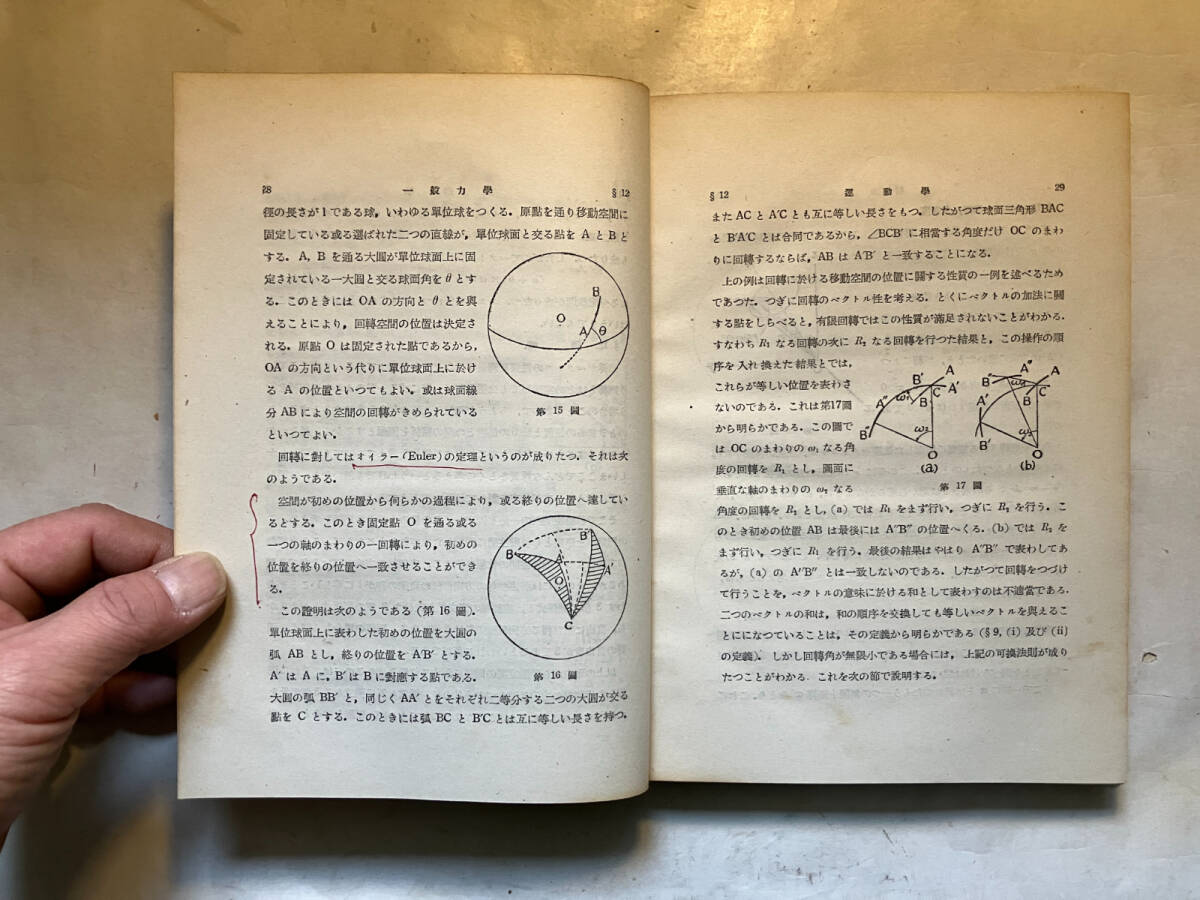 28 一般力學 §12
徑の長さが1である球，いわゆる單位球をつくる．原點を通り移動空間に
固定している或る選ばれた二つの直線が，單位球面と交る點を A と B と
する．A, B を通る大圓が單位球面上に固
定されている一大圓と交る球面角を θ とす
る．このときには OA の方向と θ とを與
えることにより，回轉空間の位置は決定さ
れる．原點 O は固定された點であるから，
OA の方向という代りに單位球面上に於け
る A の位置といつてもよい．或は球面線
分 AB により空間の回轉がきめられている
といつてよい．
B
O
A
θ
第 15 圖
回轉に對してはオイラー(Euler)の定理というのが成りたつ．それは次
のようである．
空間が初めの位置から何らかの過程により，或る終りの位置へ達してい
るとする．このとき固定點 O を通る或る
一つの軸のまわりの一回轉により，初めの
位置を終りの位置へ一致させることができ
る．
この證明は次のようである（第 16 圖）．
單位球面上に表わした初めの位置を大圓の
弧 AB とし，終りの位置を A′B′ とする．
A′ は A に，B′ は B に對應する點である．
B
B′
A′
O
C
第 16 圖
大圓の弧 BB′ と，同じく AA′ とをそれぞれ二等分する二つの大圓が交る
點を C とする．このときには弧 BC と B′C とは互に等しい長さを持つ．
§12 運動學 29
また AC と A′C とも互に等しい長さをもつ．したがつて球面三角形 BAC
と B′A′C とは合同であるから，∠BCB′ に相當する角度だけ OC のまわ
りに回轉するならば，AB は A′B′ と一致することになる．
上の例は回轉に於ける移動空間の位置に關する性質の一例を述べるため
であつた．つぎに回轉のベクトル性を考える．とくにベクトルの加法に關
する點をしらべると，有限回轉ではこの性質が滿足されないことがわかる．
すなわち R₁ なる回轉の次に R₂ なる回轉を行つた結果と，この操作の順
序を入れ換えた結果とでは，
これらが等しい位置を表わさ
ないのである．これは第17圖
から明らかである．この圖で
は OC のまわりの ω₁ なる角
度の回轉を R₁ とし，圖面に
垂直な軸のまわりの ω₂ なる
A
B′
A′
C
A″
ω₁
B
B″
ω₂
O
(a)
A″
A
B″
ω₁
C
B
A′
B′
ω₂
O
(b)
第 17 圖
角度の回轉を R₂ とし，(a) では R₁ をまず行い，つぎに R₂ を行う．こ
のとき初めの位置 AB は最後には A″B″ の位置へくる．(b) では R₂ を
まず行い，つぎに R₁ を行う．最後の結果はやはり A″B″ で表わしてあ
るが，(a) の A″B″ とは一致しないのである．したがつて回轉をつづけ
て行うことを，ベクトルの意味に於ける和として表わすのは不適當である．
二つのベクトルの和は，和の順序を交換しても等しいベクトルを與えるこ
とにになつていることは，その定義から明らかである（§9, (i) 及び (ii)
の定義）．しかし回轉角が無限小である場合には，上記の可換法則が成り
たつことがわかる．これを次の節で說明する．